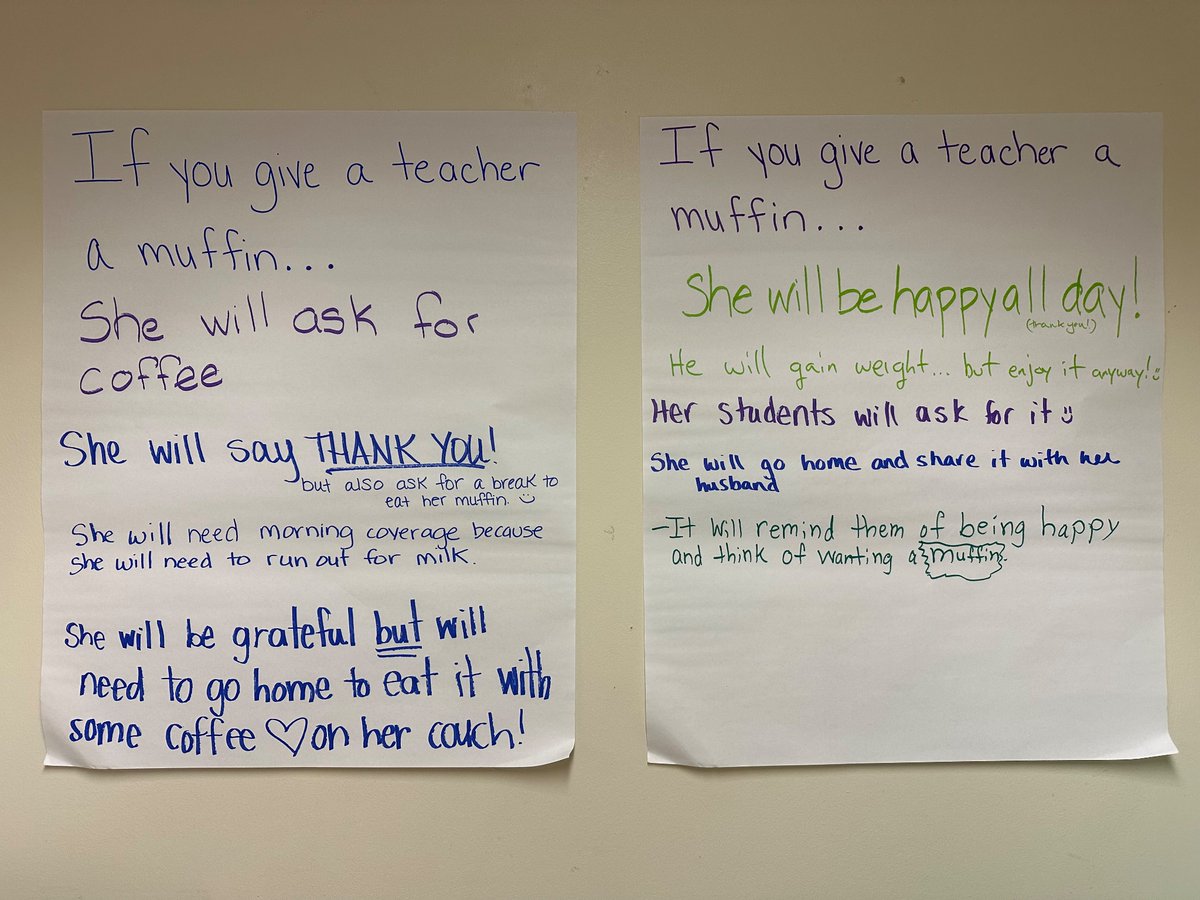 If you give a teacher
a muffin...
She will ask for
coffee
She will say THANK YOU!
but also ask for a break to
eat her muffin. ☺
She will need morning coverage because
she will need to run out for milk.
She will be grateful but will
need to go home to eat it with
some coffee ♡ on her couch!
If you give a teacher a
muffin...
She will be happy all day!
(thank you!)
He will gain weight... but enjoy it anyway! ☺
Her students will ask for it ☺
She will go home and share it with her
husband
-It will remind them of being happy
and think of wanting a muffin.